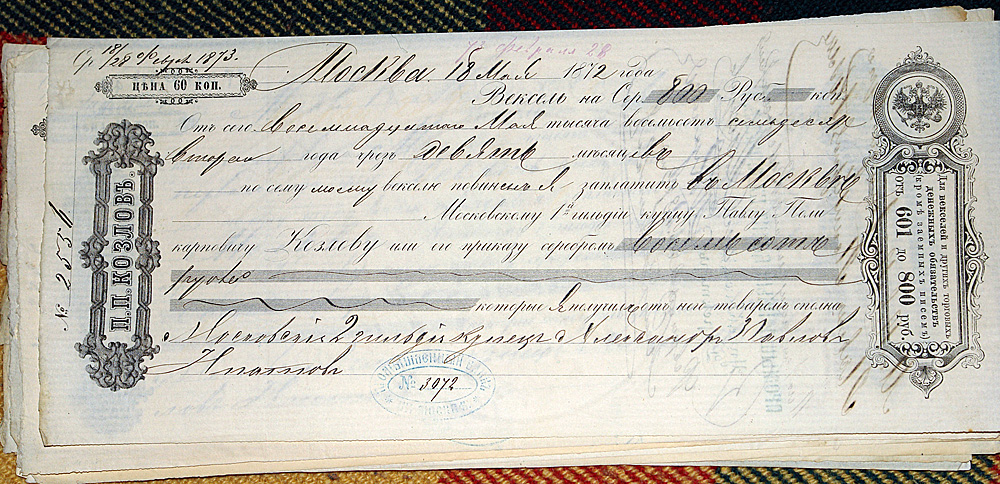 Ср. 18/28 Февр. 1873.
ЦѢНА 60 КОП.
Февраля 28
Москва. 18 Мая 1872 года
Вексель на Сер. 800 Руб. коп.
Отъ сего Восемнадцатаго Мая тысяча восемьсотъ семьдесятъ
втораго года чрезъ девять мѣсяцевъ
по сему моему векселю повиненъ я заплатить въ Москвѣ
Московскому 1й гильдіи купцу Павлу Поли
карповичу Козлову или его приказу серебромъ восемьсотъ
рублей
которые я получилъ отъ него товаромъ сполна
Московскій 2 гильдіи купецъ Александръ Павловъ
Ипатовъ
№ 3072
П.П. КОЗЛОВЪ.
Для векселей и другихъ торговыхъ
денежныхъ обязательствъ
кромѣ заемныхъ писемъ
ОТЪ 601 ДО 800 РУБ.